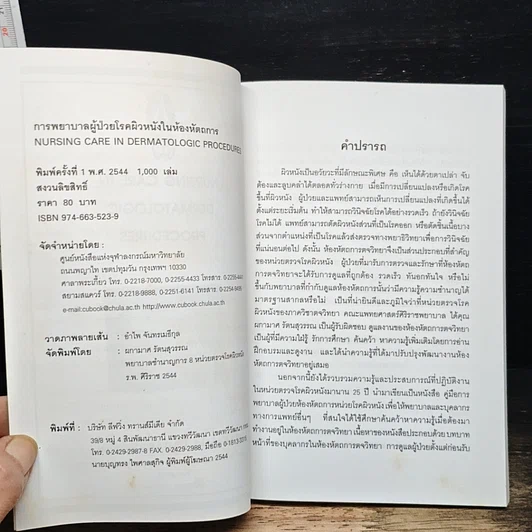 การพยาบาลผู้ป่วยโรคผิวหนังในห้องหัตถการ
NURSING CARE IN DERMATOLOGIC PROCEDURES
พิมพ์ครั้งที่ 1 พ.ศ. 2544 1,000 เล่ม
สงวนลิขสิทธิ์
ราคา 80 บาท
ISBN 974-663-523-9
จัดจำหน่ายโดย :
ศูนย์หนังสือแห่งจุฬาลงกรณ์มหาวิทยาลัย
ถนนพญาไท เขตปทุมวัน กรุงเทพฯ 10330
ศาลาพระเกี้ยว โทร. 0-2218-7000, 0-2255-4433 โทรสาร.
สยามสแควร์ โทร. 0-2218-9888, 0-2251-6141 โทรสาร.
e-mail:cubook@chula.ac.th http://www.cubook.chula.ac.th
วาดภาพลายเส้น : อำไพ จันทรเมธีกุล
จัดพิมพ์โดย : ผกามาศ รัตนสุวรรณ
พยาบาลชำนาญการ 8 หน่วยตรวจโรคผิวหนัง
ร.พ. ศิริราช 2544
พิมพ์ที่ : บริษัท ลีฟวิ่ง ทรานส์มีเดีย จำกัด
39/8 หมู่ 4 ลิพัฒนานานี แขวงทวีวัฒนา เขตทวีวัฒนา
โทร. 0-2429-2987-8 FAX. 0-2429-2988, มือถือ
นายบุญทรง ไพศาลสุกิจ ผู้พิมพ์ผู้โฆษณา 2544
คำปรารถ
ผิวหนังเป็นอวัยวะที่มีลักษณะพิเศษ คือ เห็นได้ด้วยตาเปล่า จับ
ต้องและลูบคลำได้ตลอดทั่วร่างกาย เมื่อมีการเปลี่ยนแปลงหรือเกิดโรค
ขึ้นที่ผิวหนัง ผู้ป่วยและแพทย์สามารถเห็นการเปลี่ยนแปลงที่เกิดขึ้นได้
ตั้งแต่ระยะเริ่มต้น ทำให้สามารถวินิจฉัยโรคได้อย่างรวดเร็ว ถ้ายังวินิจฉัย
โรคไม่ได้ แพทย์สามารถตัดผิวหนังส่วนที่เป็นโรคออก หรือตัดชิ้นเนื้อบาง
ส่วนจากตำแหน่งที่เป็นโรคแล้วส่งตรวจทางพยาธิวิทยาเพื่อการวินิจฉัย
ที่แน่นอนต่อไป ดังนั้น ห้องหัตถการตจวิทยาจึงเป็นส่วนประกอบที่สำคัญ
ของหน่วยตรวจโรคผิวหนัง ผู้ป่วยที่มารับการตรวจและรักษาที่ห้องหัตถ
การตจวิทยาจะได้รับการดูแลที่ถูกต้อง รวดเร็ว ทันอกทันใจ หรือไม่
ขึ้นกับพยาบาลที่กำกับดูแลห้องหัตถการนั้นว่ามีความรู้ความชำนาญได้
มาตรฐานสากลหรือไม่ เป็นที่น่ายินดีและภูมิใจว่าที่หน่วยตรวจโรค
ผิวหนังของภาควิชาตจวิทยา คณะแพทยศาสตร์ศิริราชพยาบาล ได้คุณ
ผกามาศ รัตนสุวรรณ เป็นผู้รับผิดชอบ ดูแลงานของห้องหัตถการตจวิทยา
เป็นผู้ที่มีความใฝ่รู้ รักการศึกษา ค้นคว้า หาความรู้เพิ่มเติมโดยการอ่าน
ฝึกอบรมและดูงาน และได้นำความรู้ที่ได้มาปรับปรุงพัฒนางานห้อง
หัตถการตจวิทยาอยู่เสมอ
นอกจากนี้ยังได้รวบรวมความรู้และประสบการณ์ที่ปฏิบัติงาน
ในหน่วยตรวจโรคผิวหนังมานาน 25 ปี นำมาเขียนเป็นหนังสือ คู่มือการ
พยาบาลผู้ป่วยห้องหัตถการหน่วยโรคผิวหนัง เพื่อให้พยาบาลและบุคลากร
ทางการแพทย์อื่นๆ ที่สนใจได้ใช้ศึกษาค้นคว้าหาความรู้เมื่อต้องมา
ทำงานอยู่ในห้องหัตถการตจวิทยา เนื้อหาของหนังสือประกอบด้วย บทบาท
หน้าที่ของบุคลากรในห้องหัตถการตจวิทยา การดูแลผู้ป่วยตั้งแต่ก่อนรับ